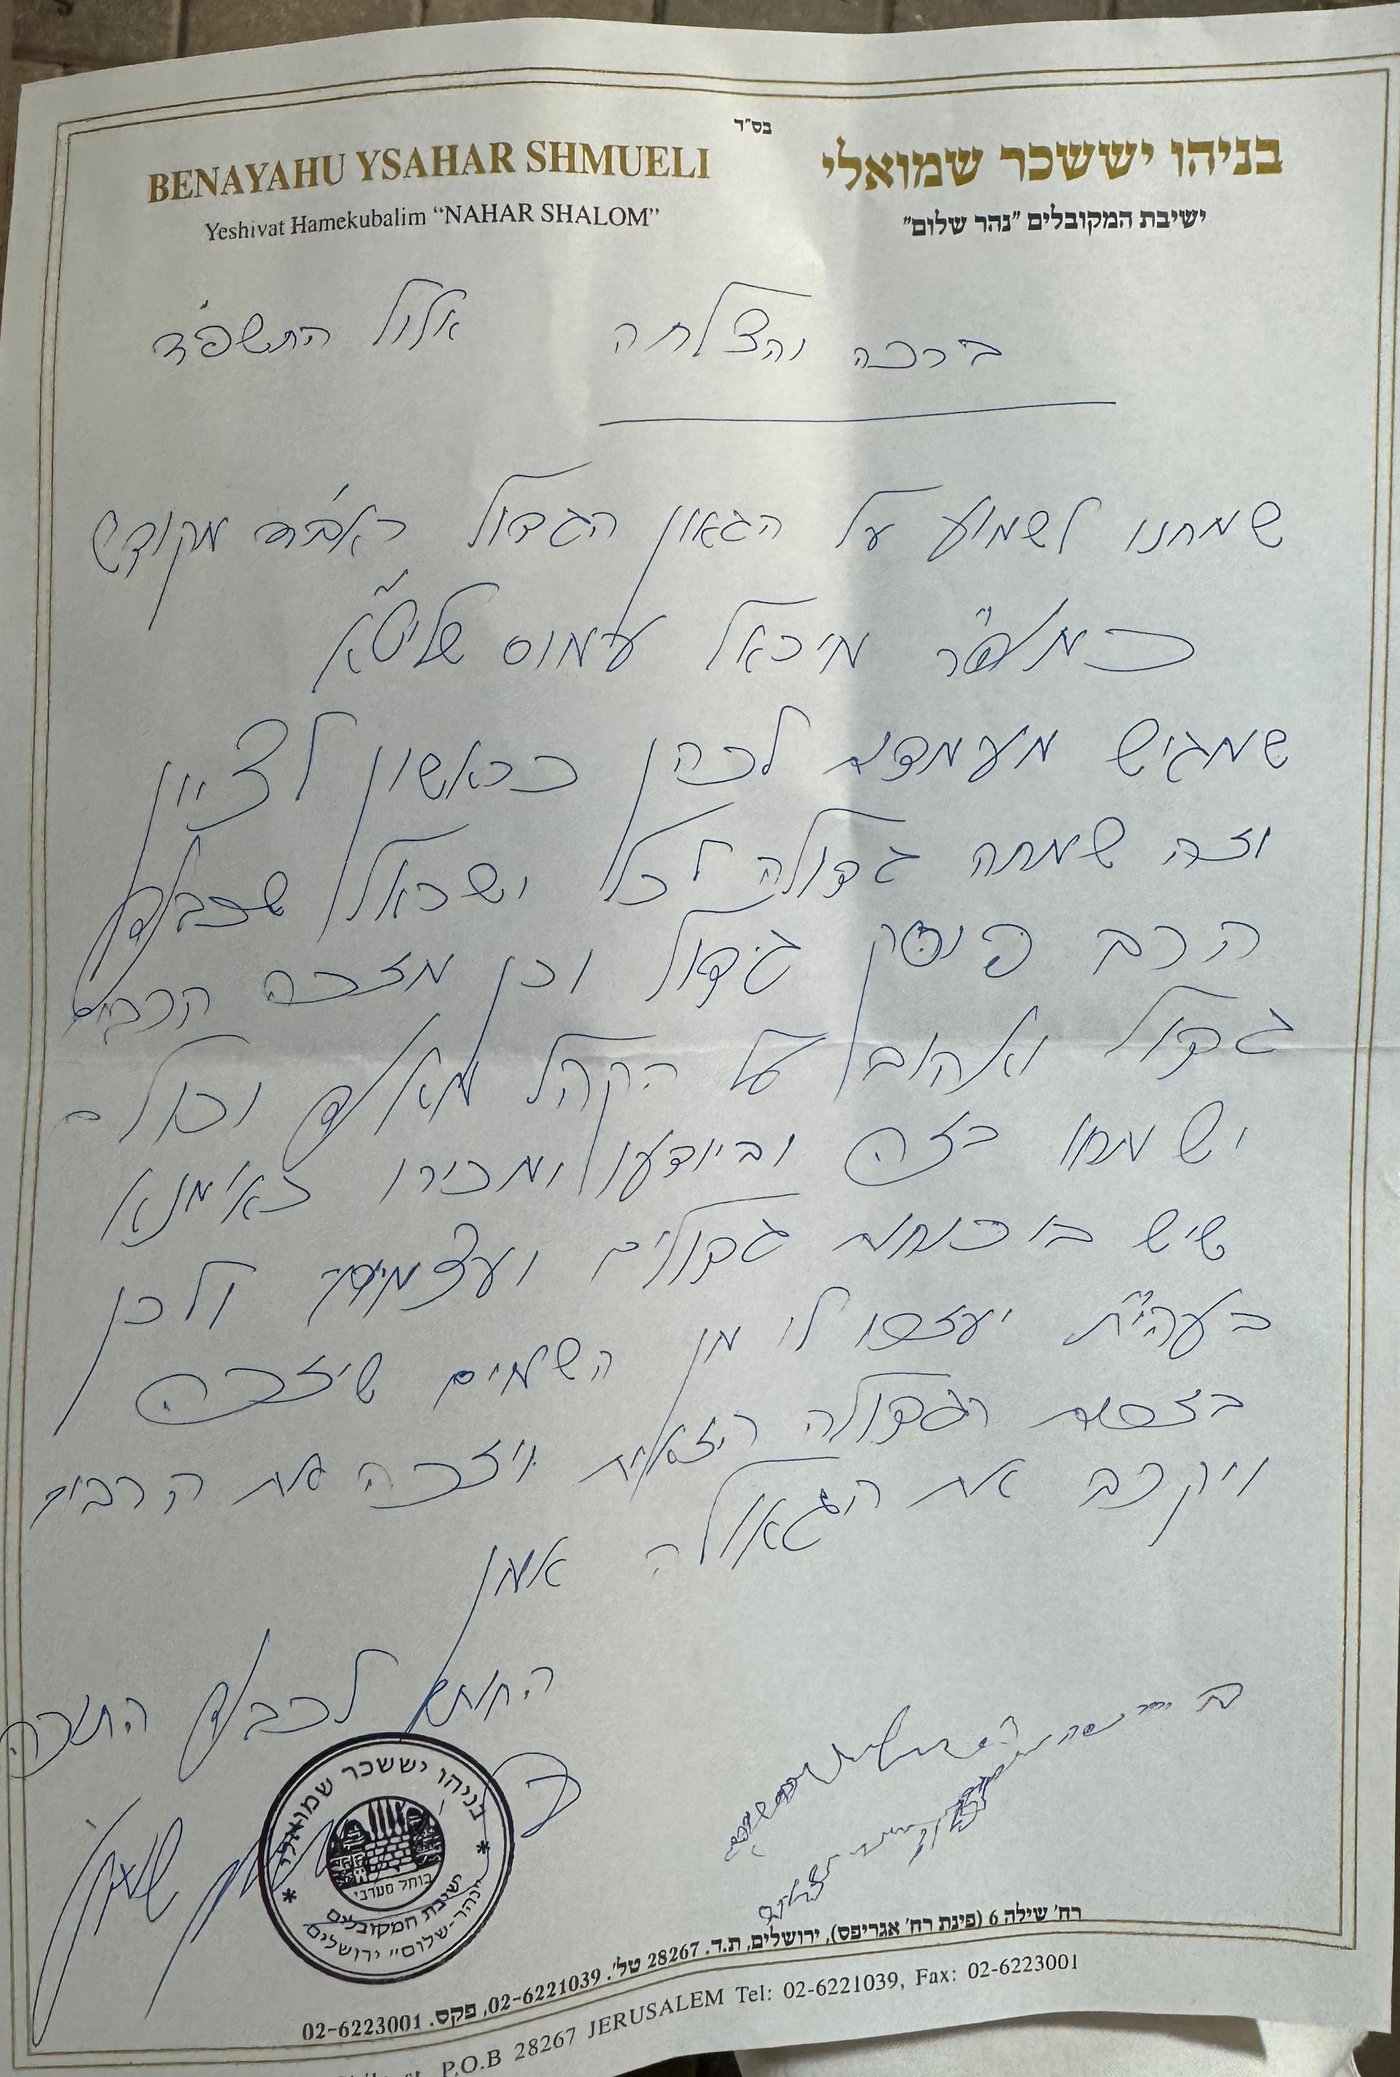 בס"ד
בניהו יששכר שמואלי
BENAYAHU YSAHAR SHMUELI
ישיבת המקובלים "נהר שלום"
Yeshivat Hamekubalim "NAHAR SHALOM"
ברכה והצלחה אלול התשפ"ד
שמחנו לשמוע על הגאון הגדול ראב"ד מקודש
כמוע"ר מיכאל עמוס שליט"א
שמגיש מועמדות לכהן כראשון לציון
וזה שמחה גדולה לכלל ישראל שכבוד
הרב פוסק גדול וכן מזכה הרבים
גדול ואהוב על הקהל מאוד וכולם
ישמחו בזה וביודעו ומכירו קאימנא
שיש בו כוחות גדולים ועצומים ולכן
בעהי"ת יעזרו לו מן השמים שיזכה
בזכות הגדולה הזאת ויזכה את הרבים
ויקרב את הגאולה אמן
החותם לכבוד התורה
בניהו יששכר שמואלי
ישיבת המקובלים
"נהר-שלום" ירושלים
כותל מערבי
רח' שילה 6 (פינת רח' אגריפס), ירושלים, ת.ד. 28267 טל'. 02-6221039, פקס. 02-6223001
P.O.B 28267 JERUSALEM Tel: 02-6221039, Fax: 02-6223001